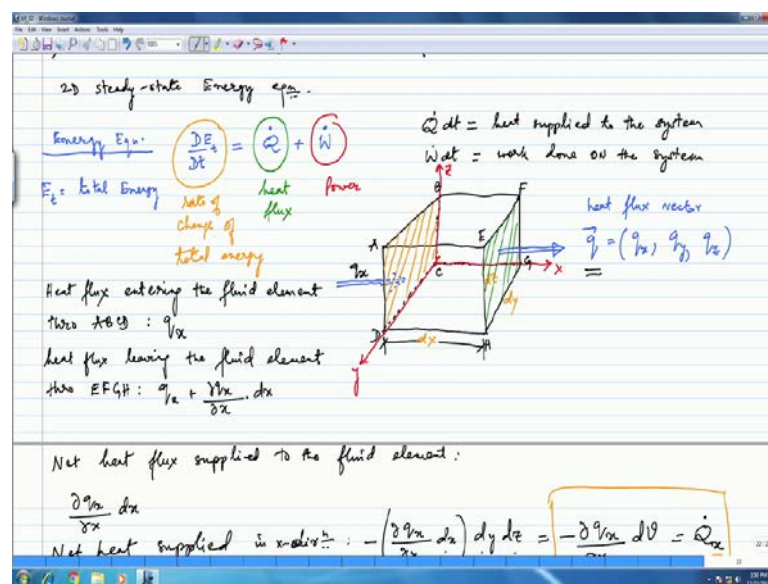 File Edit View Insert Actions Tools Help
2D steady-state Energy eqn.
Energy Eqn. DE_t/Dt = Q̇ + Ẇ
E_t = total Energy
rate of change of total energy
heat flux
power
Q̇ dt = heat supplied to the system
Ẇ dt = work done ON the system
heat flux vector
q⃗ = (q_x, q_y, q_z)
z
B
F
A
E
q_x
C
G
x
dz
dy
D
dx
H
y
Heat flux entering the fluid element
thro ABCD : q_x
heat flux leaving the fluid element
thro EFGH : q_x + ∂q_x/∂x . dx
Net heat flux supplied to the fluid element :
∂q_x/∂x dx
Net heat supplied in x-dirn : -(∂q_x/∂x dx) dy dz = -∂q_x/∂x dϑ = Q̇_x